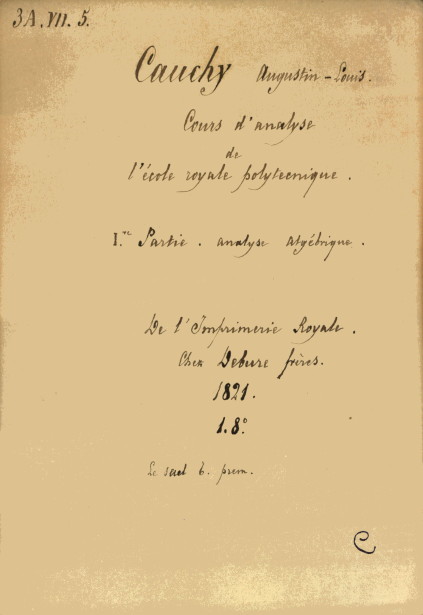 3A.VII.5.
Cauchy Augustin-Louis.
Cours d'analyse
de
l'école royale polytecnique.
I.re Partie. analyse algébrique.
De l'Imprimerie Royale.
Chez Debure frères.
1821.
1.8°
Le seul t. prem.
C